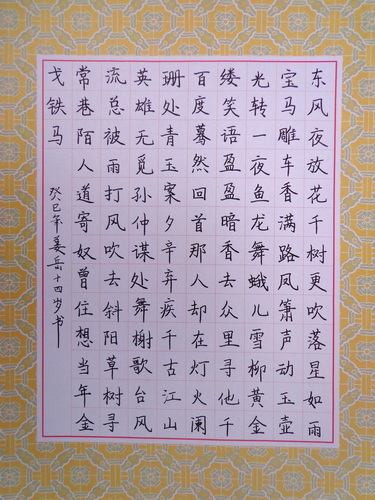 东风夜放花千树更吹落星如雨
宝马雕车香满路凤箫声动玉壶
光转一夜鱼龙舞蛾儿雪柳黄金
缕笑语盈盈暗香去众里寻他千
百度蓦然回首那人却在灯火阑
珊处青玉案夕辛弃疾千古江山
英雄无觅孙仲谋处舞榭歌台风
流总被雨打风吹去斜阳草树寻
常巷陌人道寄奴曾住想当年金
戈铁马
癸巳年姜岳十四岁书